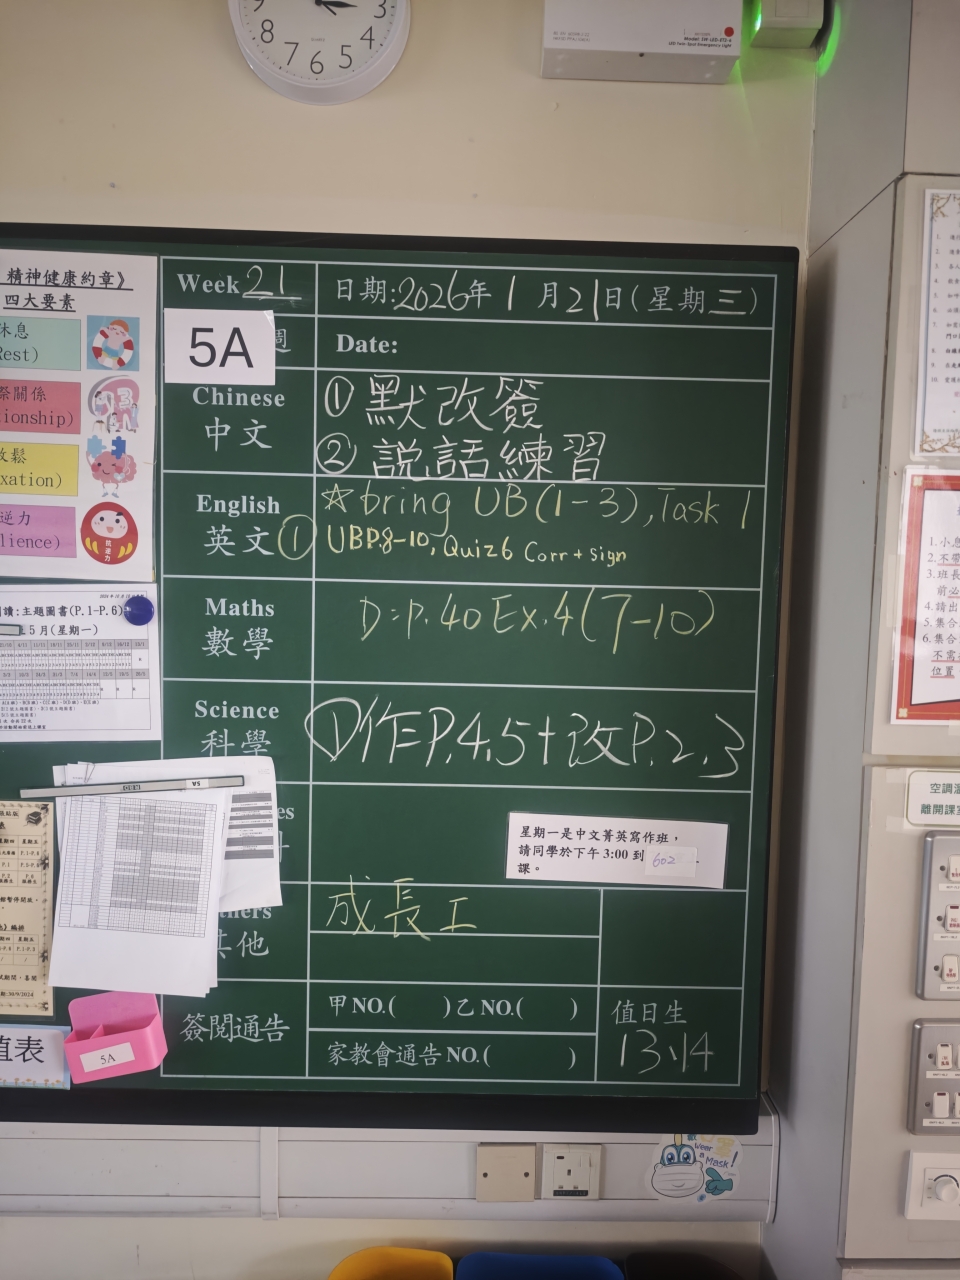 9
3
8
4
7
6
5
精神健康約章》
四大要素
休息
Rest)
際關係
ionship)
放鬆
xation)
逆力
lience)
抗逆力
讀:主題圖書(P.1-P.6)
5月(星期一)
Week 21
日期:2026年1月21日(星期三)
5A
週
Date:
Chinese
中文
① 默改簽
② 說話練習
English
英文
☆ bring UB(1-3), Task 1
① UB P.8-10, Quiz6 Corr + sign
Maths
數學
D=P.40 Ex.4(7-10)
Science
科學
① 作=P.4,5+改P.2,3
es
星期一是中文菁英寫作班,
請同學於下午3:00到 602
課。
hers
其他
成長工
簽閱通告
甲NO.( )乙NO.( )
家教會通告NO.( )
值日生
13、14
值表
5A
Wear
a
Mask!
1.小息
2.不帶
3.班長
前必
4.請出
5.集合
6.集合
不需
位置
空調溫
離開課室